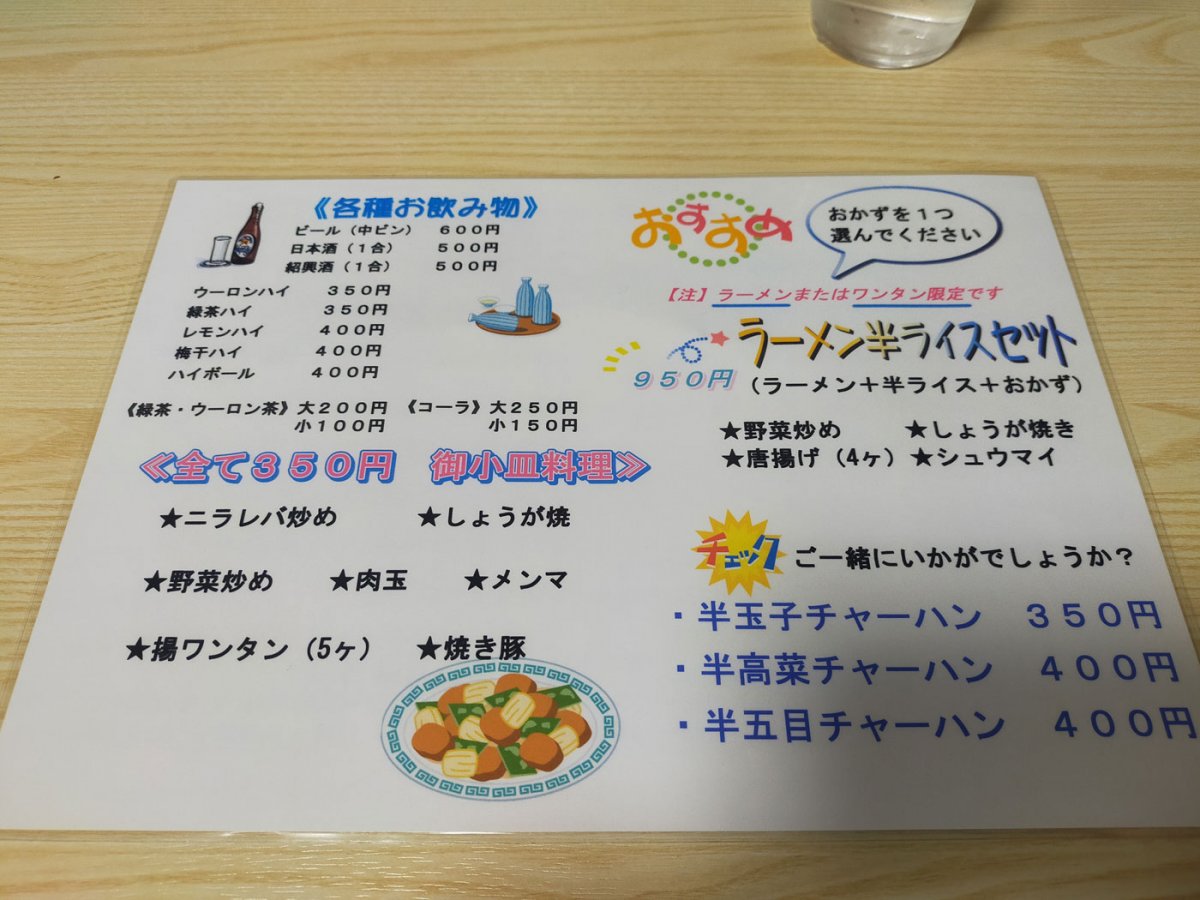 《各種お飲み物》
ビール（中ビン） ６００円
日本酒（１合） ５００円
紹興酒（１合） ５００円
ウーロンハイ ３５０円
緑茶ハイ ３５０円
レモンハイ ４００円
梅干ハイ ４００円
ハイボール ４００円
《緑茶・ウーロン茶》大２００円 《コーラ》大２５０円
小１００円 小１５０円
≪全て３５０円 御小皿料理≫
★ニラレバ炒め ★しょうが焼
★野菜炒め ★肉玉 ★メンマ
★揚ワンタン（5ヶ） ★焼き豚
おすすめ
おかずを１つ
選んでください
【注】ラーメンまたはワンタン限定です
ラーメン半ライスセット
９５０円 （ラーメン＋半ライス＋おかず）
★野菜炒め ★しょうが焼き
★唐揚げ（4ヶ）★シュウマイ
チェック ご一緒にいかがでしょうか？
・半玉子チャーハン ３５０円
・半高菜チャーハン ４００円
・半五目チャーハン ４００円